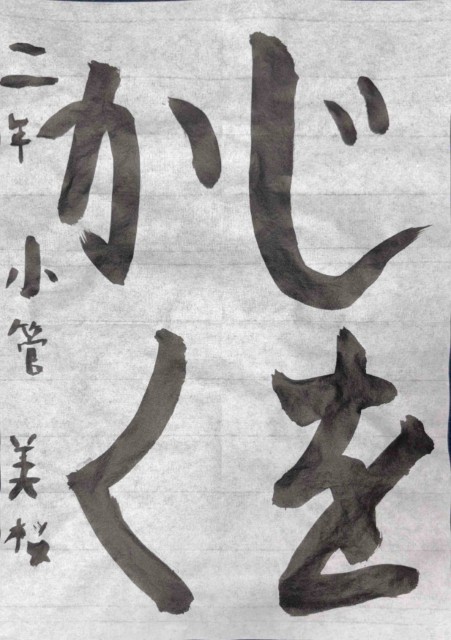 じを
かく
二年 小管 美桜